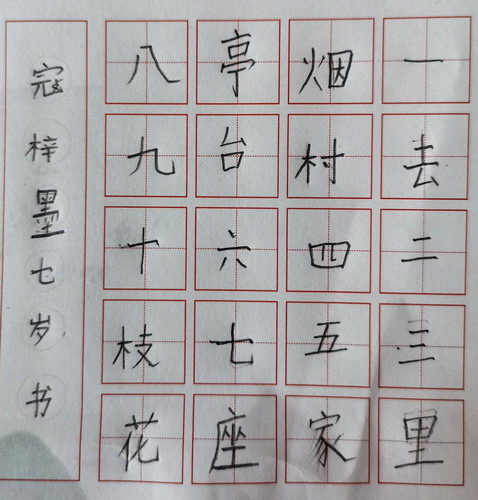 一去二三里
烟村四五家
亭台六七座
八九十枝花
寇梓墨七岁书